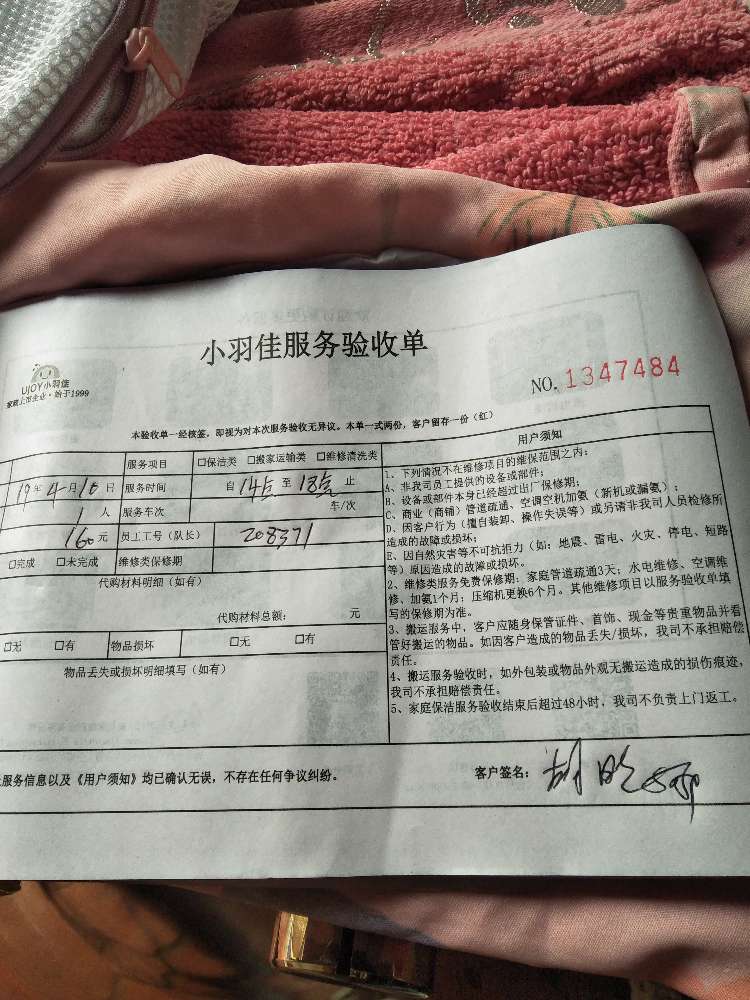 小羽佳服务验收单
UJOY小羽佳
家庭上门企业·始于1999
NO. 1347484
本验收单一经核签，即视为对本次服务验收无异议。本单一式两份，客户留存一份（红）
服务项目 □保洁类 □搬家运输类 □维修清洗类
19年4月10日 服务时间 自 14点 至 18点 止
1 人 服务车次 车/次
160元 员工工号（队长） 208371
□完成 □未完成 维修类保修期
代购材料明细（如有）
代购材料总额： 元
□无 □有 物品损坏 □无 □有
物品丢失或损坏明细填写（如有）
用户须知
1、下列情况不在维修项目的维保范围之内：
A、非我司员工提供的设备或部件；
B、设备或部件本身已经超过出厂保修期；
C、商业（商铺）管道疏通、空调空机加氨（新机或漏氨）；
D、因客户行为（擅自装卸、操作失误等）或另请非我司人员检修所
造成的故障或损坏；
E、因自然灾害等不可抗拒力（如：地震、雷电、火灾、停电、短路
等）原因造成的故障或损坏。
2、维修类服务免费保修期：家庭管道疏通3天；水电维修、空调维
修、加氨1个月；压缩机更换6个月。其他维修项目以服务验收单填
写的保修期为准。
3、搬运服务中，客户应随身保管证件、首饰、现金等贵重物品并看
管好搬运的物品。如因客户造成的物品丢失/损坏，我司不承担赔偿
责任。
4、搬运服务验收时，如外包装或物品外观无搬运造成的损伤痕迹，
我司不承担赔偿责任。
5、家庭保洁服务验收结束后超过48小时，我司不负责上门返工。
服务信息以及《用户须知》均已确认无误，不存在任何争议纠纷。
客户签名： 胡